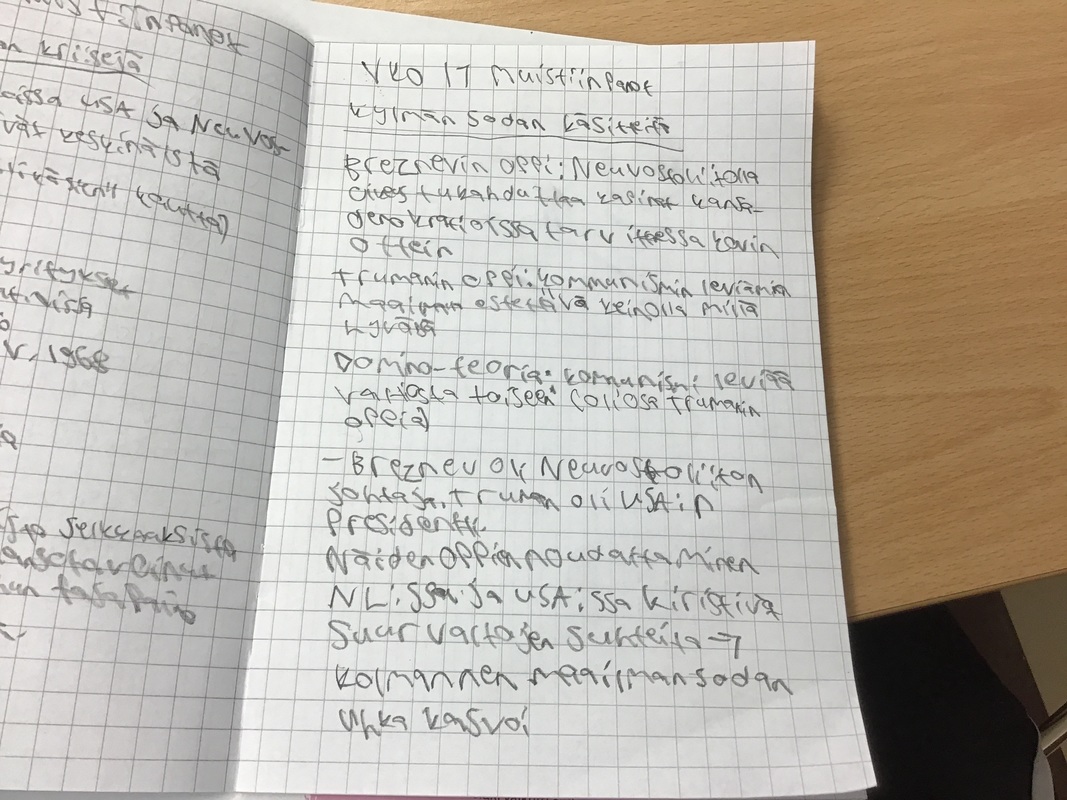 tiinpanot
kriisejä
oissa USA ja Neuvos-
vät keskinäistä
kautta)
yrityksen
v. 1968
VKO 17 Muistiinpanot
Kylmän sodan käsitteitä
Breznevin oppi: Neuvostoliitolla
oikeus tukahduttaa kasinot kansa-
demokratioissa tarvitessa kovin
ottein
trumanin oppi: kommunismin leviämin
maailman estettävä keinolla millä
hyvänsä
Domino-teoria: komunismi leviää
valtiosta toiseen (ollosa trumanin
oppia)
- Breznev oli Neuvostoliiton
johtaja, truman oli USA:n
Presidentti.
Näiden oppien noudattaminen
NL:ssa ja USA:ssa kiristivä
Suurvaltojen suhteita →
Kolmannen maailmansodan
uhka kasvoi